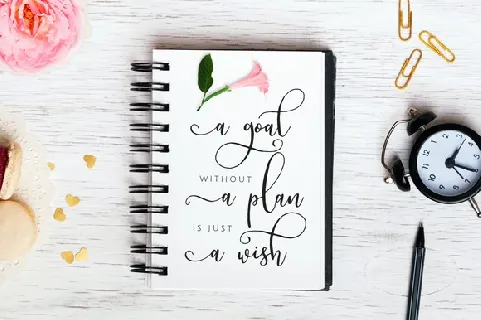 a goal
WITHOUT
a plan
S JUST
a wish